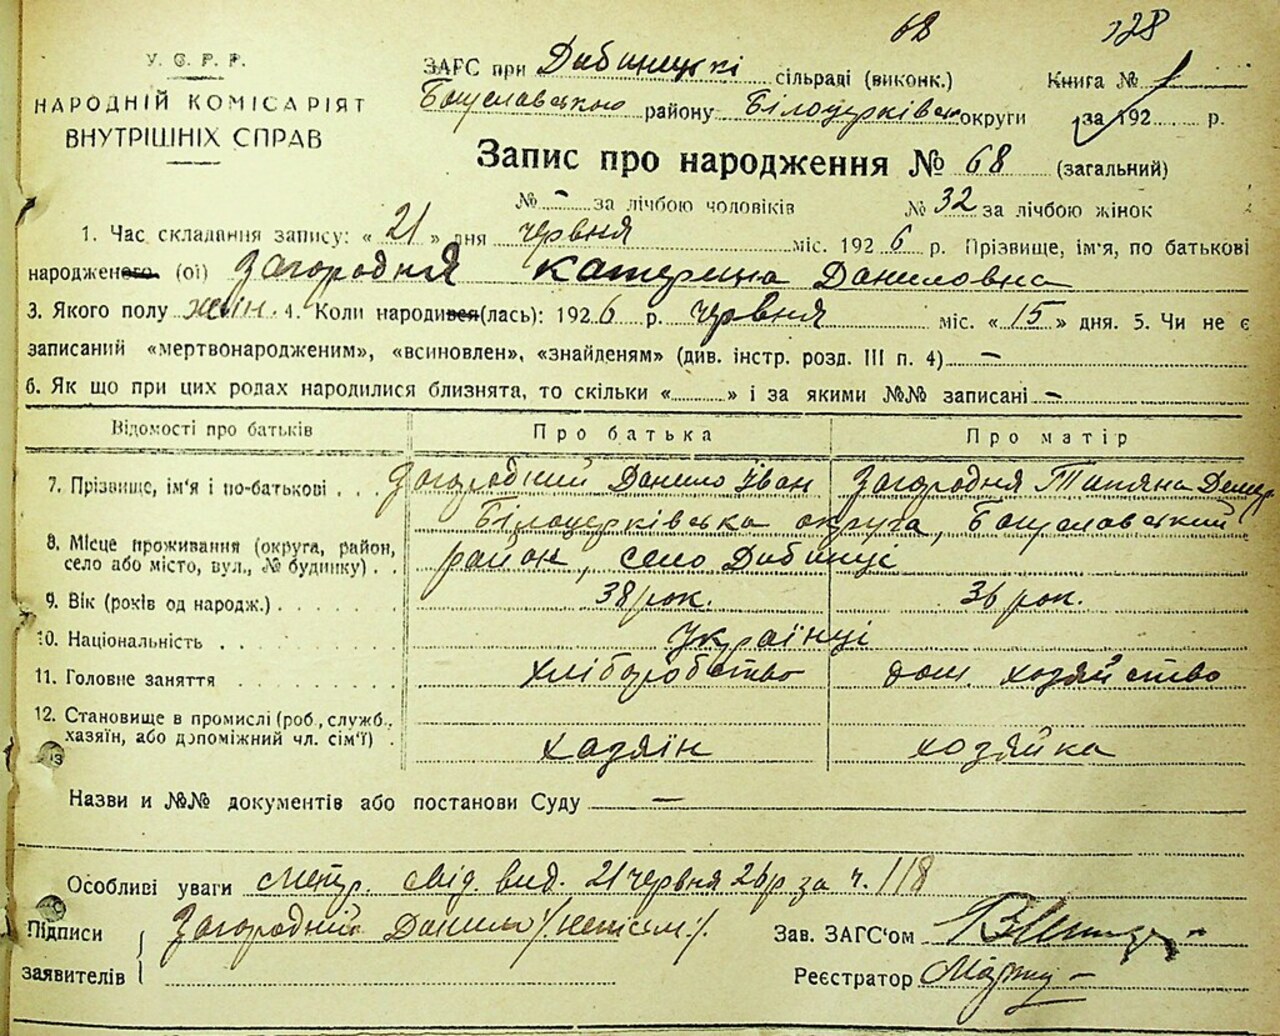 68 328
У. С. Р. Р.
НАРОДНІЙ КОМІСАРІЯТ
ВНУТРІШНІХ СПРАВ
ЗАГС при Дибинецькі сільраді (виконк.) Книга № 1
Богуславського району Білоцерківськ округи за 192 р.
Запис про народження № 68 (загальний)
№ – за лічбою чоловіків № 32 за лічбою жінок
1. Час складання запису: « 21 » дня червня міс. 192 6 р. Прізвище, ім'я, по батькові
народженого (ої) Загородня Катерина Даниловна
3. Якого полу жін. 4. Коли народився(лась): 192 6 р. червня міс. « 15 » дня. 5. Чи не є
записаний «мертвонародженим», «всиновлен», «знайденям» (див. інстр. розд. III п. 4) –
6. Як що при цих родах народилися близнята, то скільки « » і за якими №№ записані –
Відомості про батьків Про батька Про матір
7. Прізвище, ім'я і по-батькові . . . Загородний Данило Іван Загородня Татяна Демер
Білоцерківська округа, Богуславський
8. Місце проживання (округа, район,
село або місто, вул., № будинку) . . район, село Дибинці
9. Вік (років од народж.) . . . . . . 38 рок. 36 рок.
10. Національність . . . . . . . . . Українці
11. Головне заняття . . . . . . . . хліборобство дом. хозяйство
12. Становище в промислі (роб., служб.,
хазяїн, або допоміжний чл. сім'ї) . хазяїн хозяйка
Назви и №№ документів або постанови Суду –
Особливі уваги метр. свід. вид. 21 червня 26 р за ч. 118
Підписи Загородній Данило /неписьм./. Зав. ЗАГС'ом
заявителів Реєстратор